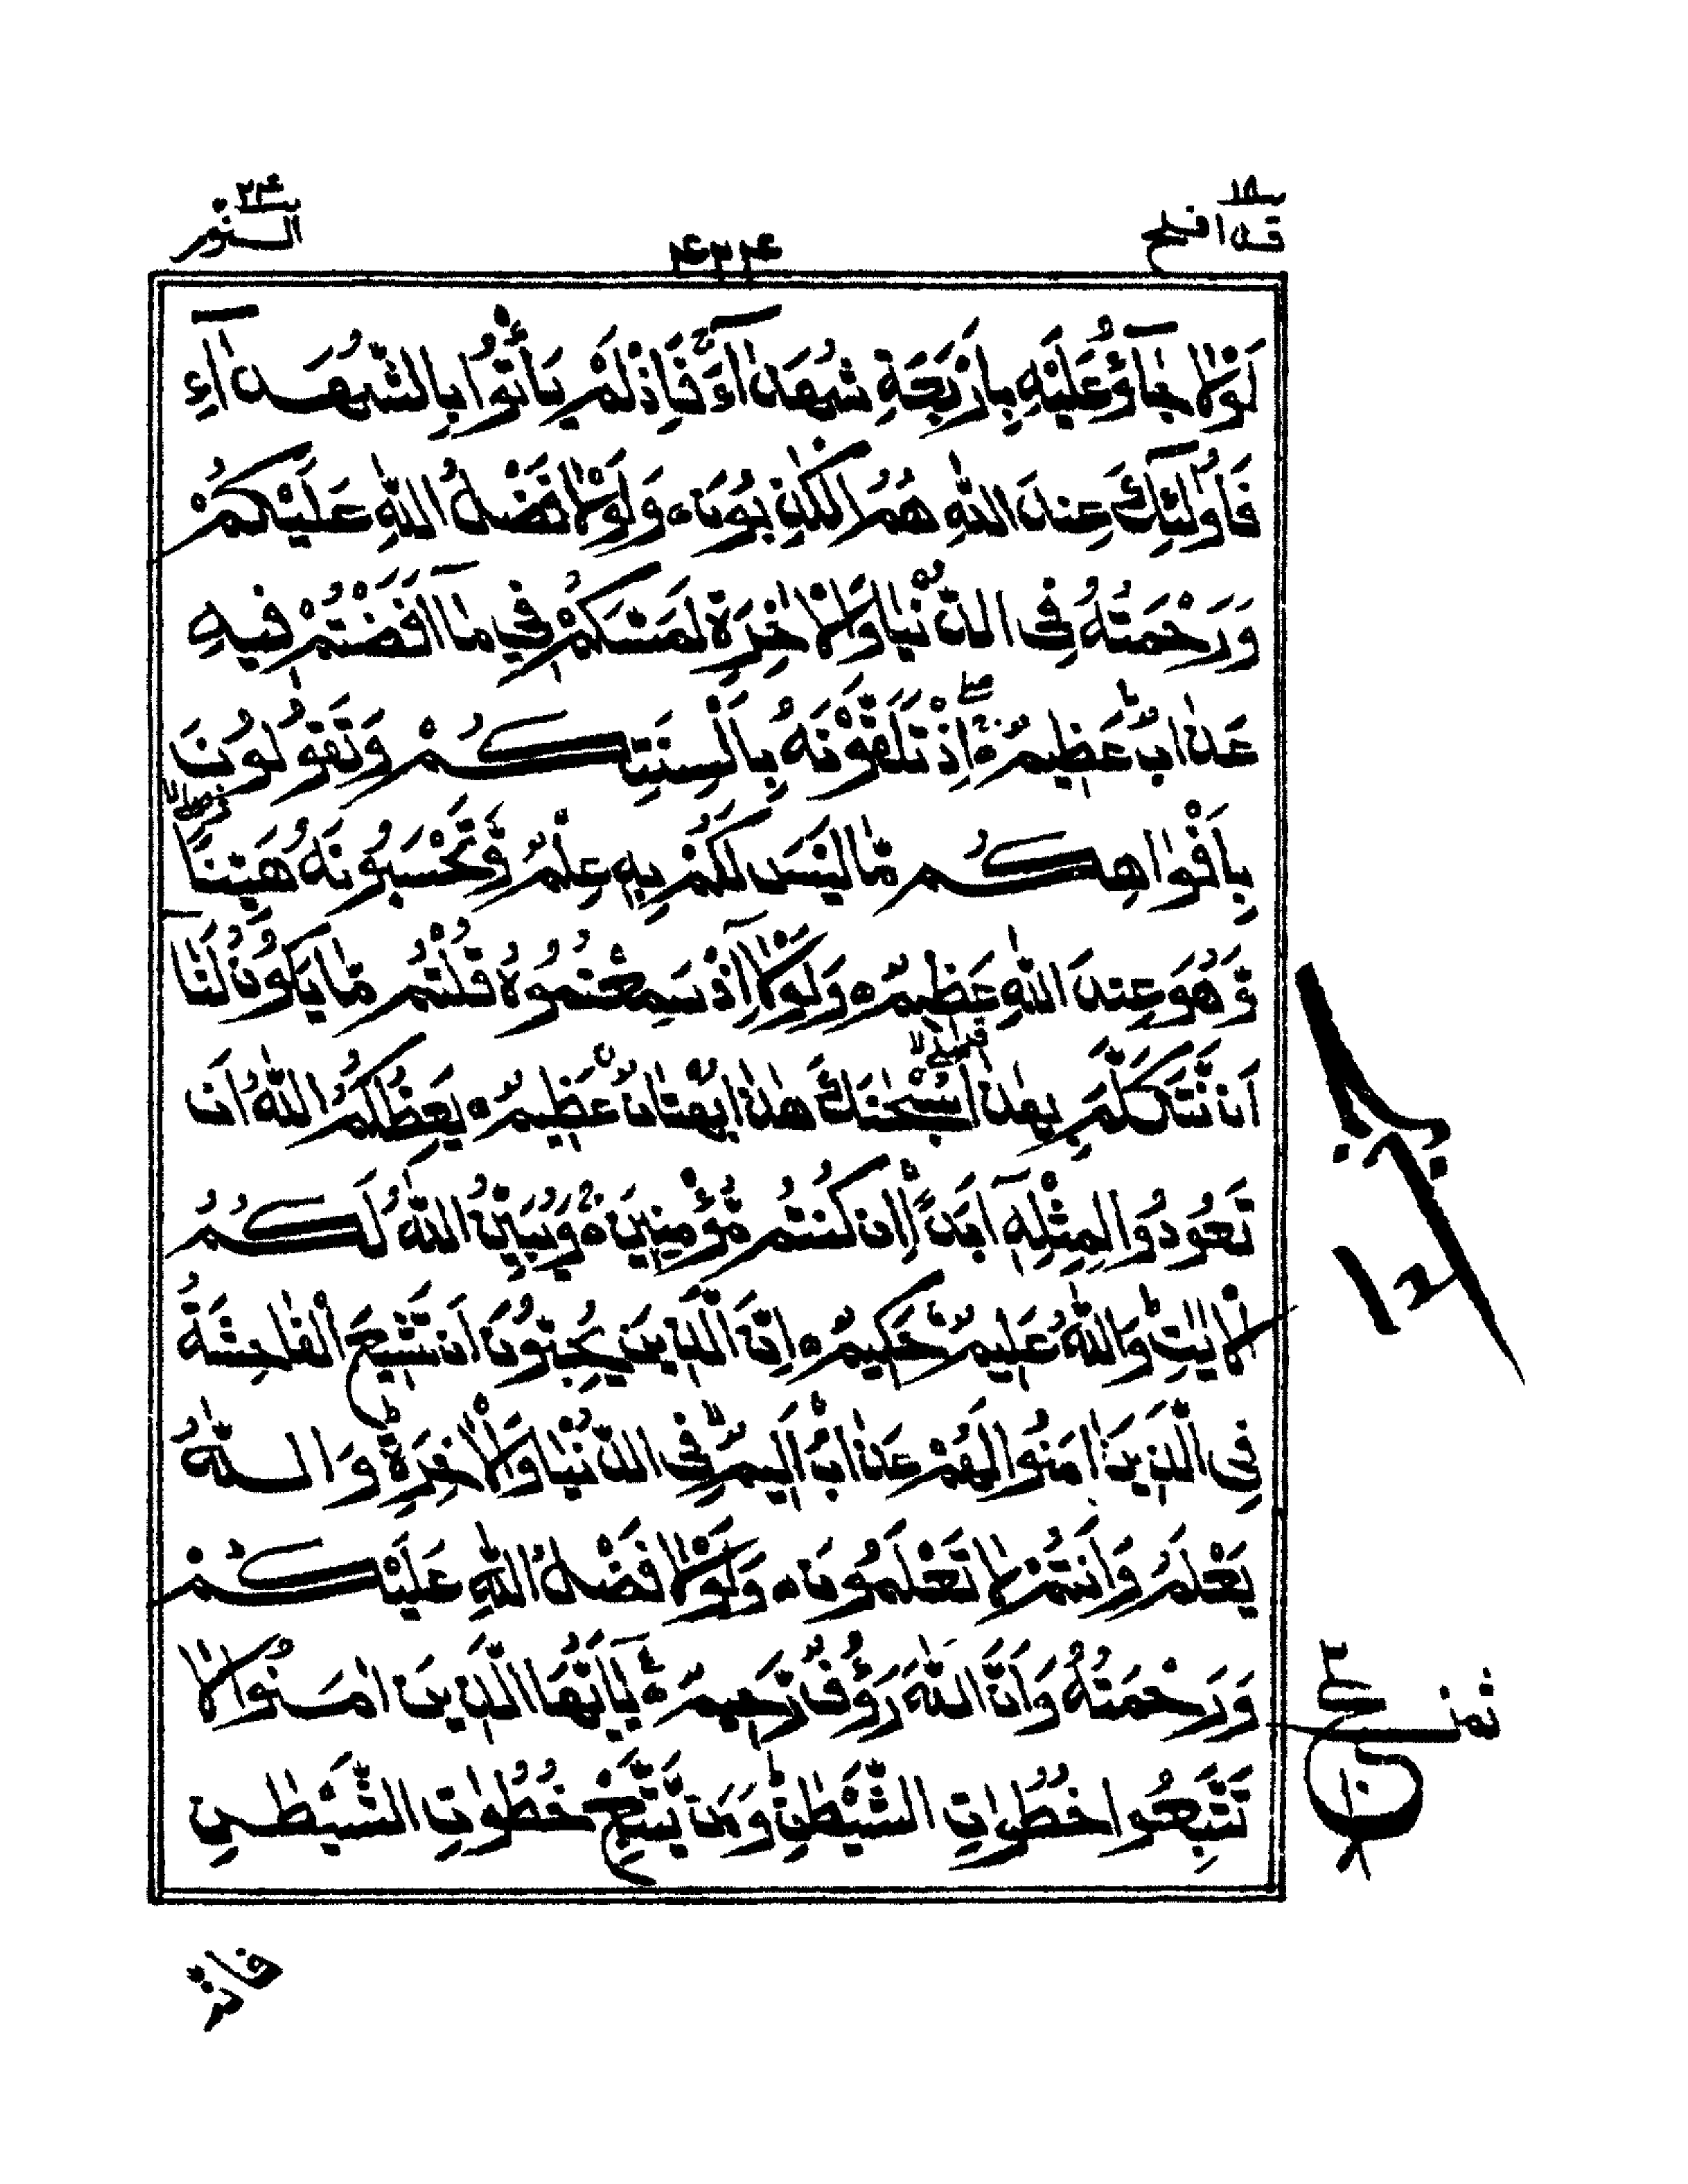 ١٨
قد افلح
٤٢٤
٢٤
النور
لَوْلَا جَآءُوْ عَلَيْهِ بِاَرْبَعَةِ شُهَدَآءَ ۚ فَاِذْ لَمْ يَاْتُوْا بِالشُّهَدَآءِ
فَاُولٰٓئِكَ عِنْدَ اللّٰهِ هُمُ الْكٰذِبُوْنَ ۝ وَلَوْلَا فَضْلُ اللّٰهِ عَلَيْكُمْ
وَرَحْمَتُهٗ فِى الدُّنْيَا وَالْاٰخِرَةِ لَمَسَّكُمْ فِيْ مَاۤ اَفَضْتُمْ فِيْهِ
عَذَابٌ عَظِيْمٌ ۝ اِذْ تَلَقَّوْنَهٗ بِاَلْسِنَتِكُمْ وَتَقُوْلُوْنَ
بِاَفْوَاهِكُمْ مَّا لَيْسَ لَكُمْ بِهٖ عِلْمٌ وَّتَحْسَبُوْنَهٗ هَيِّنًا
وَّهُوَ عِنْدَ اللّٰهِ عَظِيْمٌ ۝ وَلَوْلَاۤ اِذْ سَمِعْتُمُوْهُ قُلْتُمْ مَّا يَكُوْنُ لَنَاۤ
اَنْ نَّتَكَلَّمَ بِهٰذَا سُبْحٰنَكَ هٰذَا بُهْتَانٌ عَظِيْمٌ ۝ يَعِظُكُمُ اللّٰهُ اَنْ
تَعُوْدُوْا لِمِثْلِهٖۤ اَبَدًا اِنْ كُنْتُمْ مُّؤْمِنِيْنَ ۝ وَيُبَيِّنُ اللّٰهُ لَكُمُ
الْاٰيٰتِ ؕ وَاللّٰهُ عَلِيْمٌ حَكِيْمٌ ۝ اِنَّ الَّذِيْنَ يُحِبُّوْنَ اَنْ تَشِيْعَ الْفَاحِشَةُ
فِى الَّذِيْنَ اٰمَنُوْا لَهُمْ عَذَابٌ اَلِيْمٌ فِى الدُّنْيَا وَالْاٰخِرَةِ ؕ وَاللّٰهُ
يَعْلَمُ وَاَنْتُمْ لَا تَعْلَمُوْنَ ۝ وَلَوْلَا فَضْلُ اللّٰهِ عَلَيْكُمْ
وَرَحْمَتُهٗ وَاَنَّ اللّٰهَ رَءُوْفٌ رَّحِيْمٌ ۝ يٰۤاَيُّهَا الَّذِيْنَ اٰمَنُوْا لَا
تَتَّبِعُوْا خُطُوٰتِ الشَّيْطٰنِ ؕ وَمَنْ يَّتَّبِعْ خُطُوٰتِ الشَّيْطٰنِ
ثمن
ع
فانه